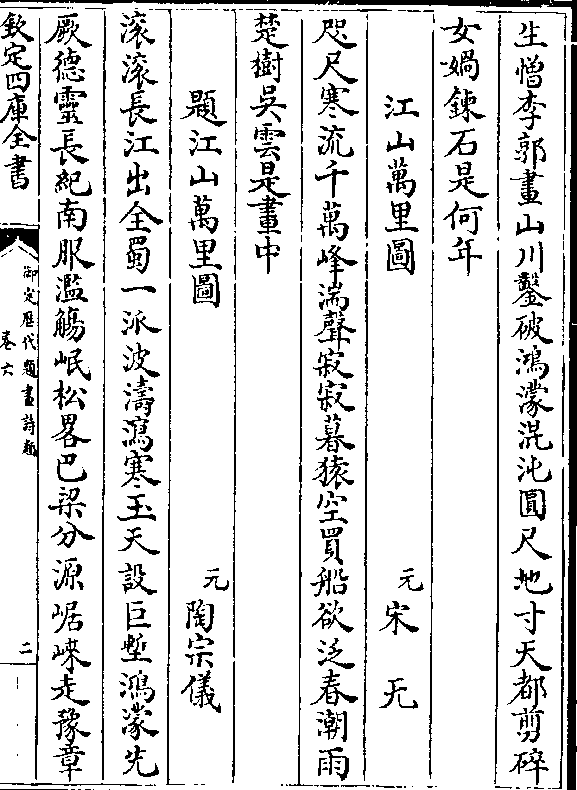 生憎李郭畫山川鑿破鴻濛混沌圓尺地寸天都剪碎
女媧鍊石是何年
江山萬里圖
元宋无
咫尺寒流千萬峰湍聲寂寂暮猿空買船欲泛春潮雨
楚樹吳雲是畫中
題江山萬里圖
元陶宗儀
滚滚長江出全蜀一派波濤瀉寒玉天設巨塹鴻濛先
厥德靈長紀南服濫觴岷松畧巴梁分源崌崍走豫章
欽定四庫全書
御定歷代題畫詩類
卷六
二